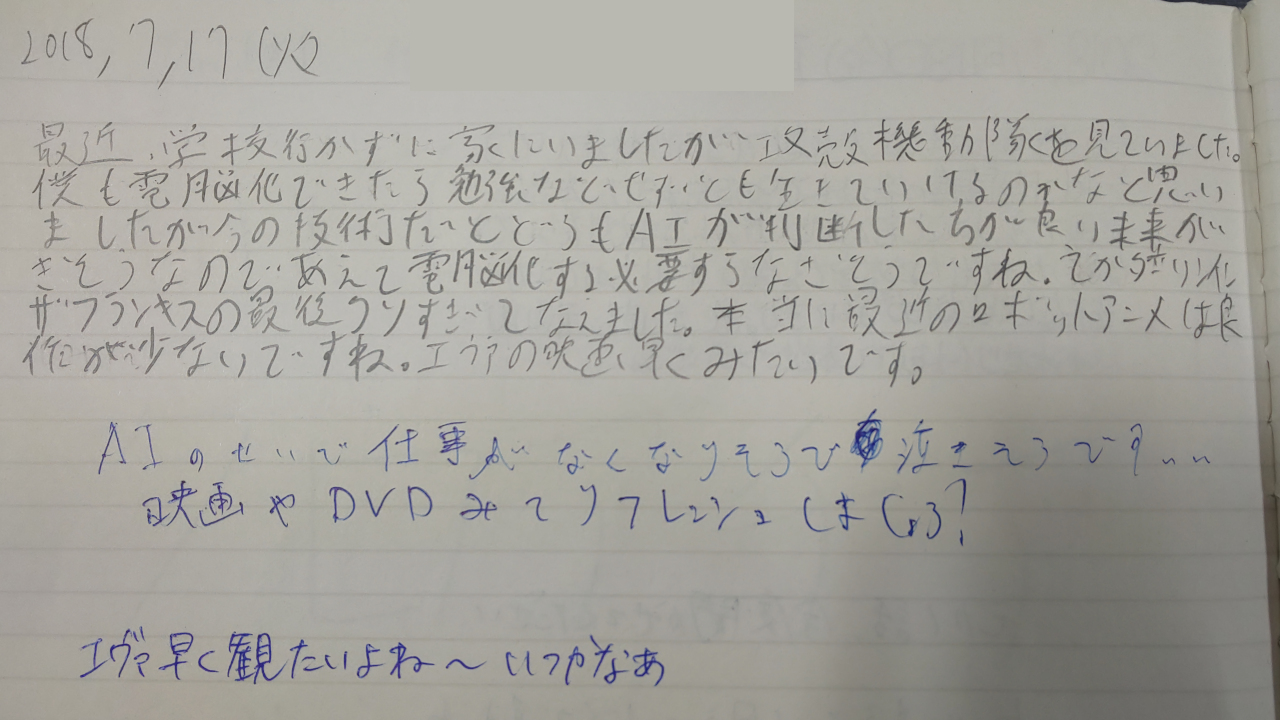 2018,7,17(火)
最近、学校行かずに家にいましたが攻殻機動隊を見ていました。
僕も電脳化できたら勉強などせずとも生きていけるのかなと思い
ましたが今の技術だとどうもAIが判断したらが良い未来が
きそうなのであえて電脳化する必要するなさそうですね。てかダリンイン
ザフランキスの最後クソすぎてなえました。本当に最近のロボットアニメは良
作が少ないですね。エヴァの映画、早くみたいです。
AIのせいで仕事がなくなりそうで泣きそうです...
映画やDVDみてリフレッシュしましょう!
エヴァ早く観たいよね〜いつかなぁ